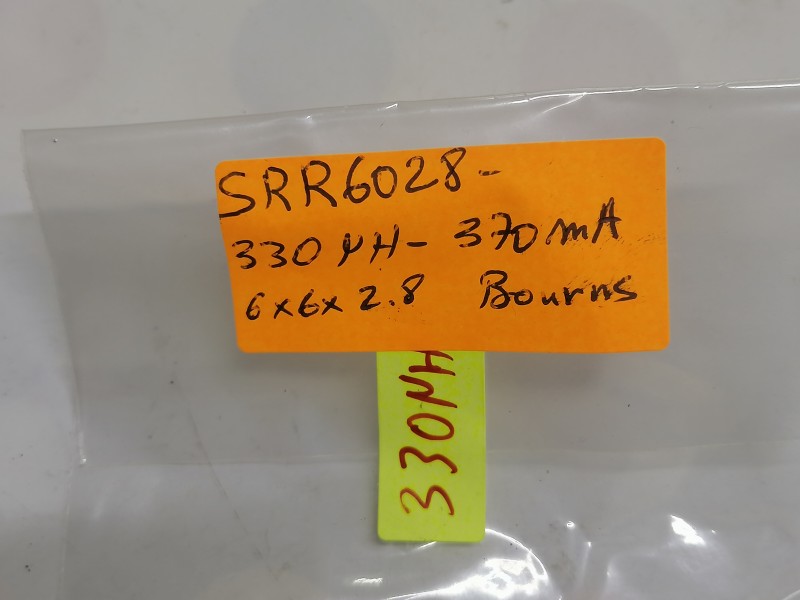 SRR6028-
330 µH- 370mA
6x6x2.8 Bourns
330µH